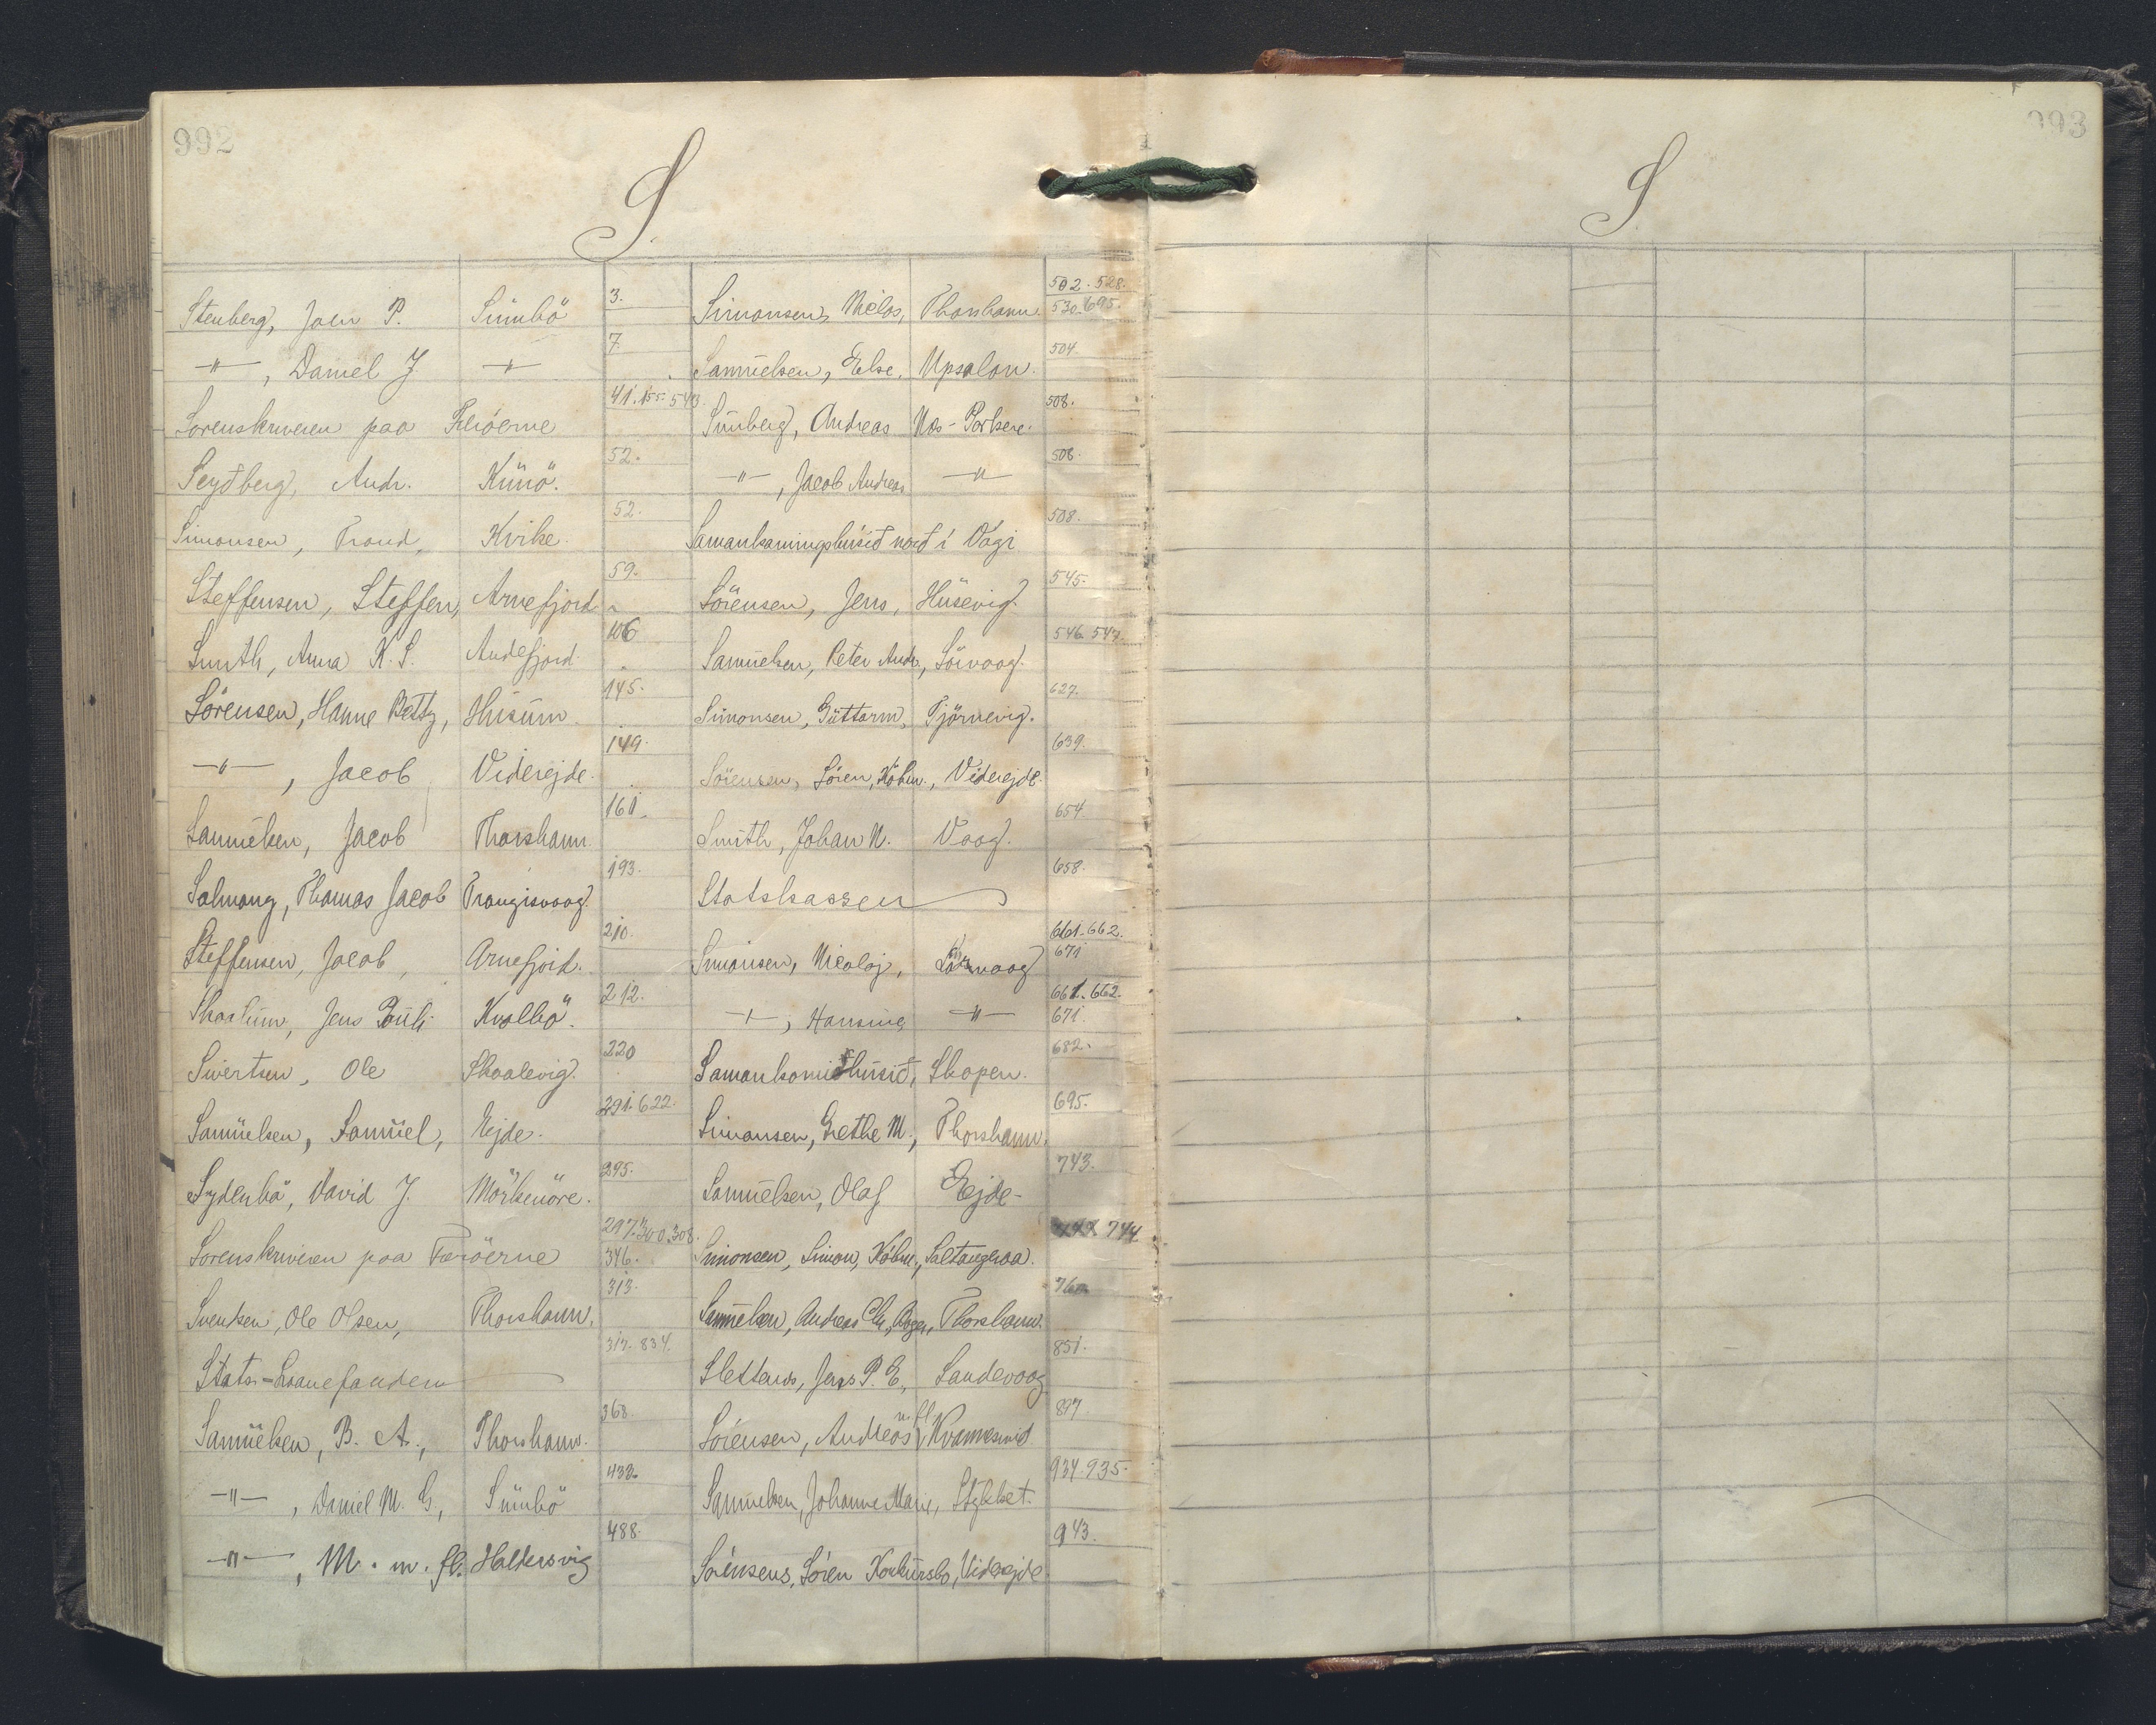 992
993
S.
S.
Stenberg, Joen P. Sumbö 3.
—"—, Daniel J —"— 7.
Sorenskriveren paa Færöerne 41. 155. 543.
Seydberg, Andr. Kunö. 52.
Simonsen, Trond, Kvike. 52.
Steffensen, Steffen, Arnefjord. 59.
Smith, Anna K. S. Andefjord. 106
Sörensen, Hanne Betty, Husum. 145.
—"—, Jacob Viderejde. 149.
Samuelsen, Jacob Thorshavn. 161.
Salmang, Thomas Jacob Trangisvaag. 193.
Steffensen, Jacob, Arnefjord. 210.
Skaalum, Jens Pauli Kvalbö. 212.
Sivertsen, Ole Skaalevig. 220
Samuelsen, Samuel, Ejde. 291. 622.
Sydenbö, David J. Mörkenöre. 295.
Sorenskriveren paa Færöerne 297. 300. 308. 346.
Svendsen, Ole Olsen, Thorshavn. 313.
Stats-Laanefonden 317. 834.
Samuelsen, B. A., Thorshavn. 368.
—"—, Daniel M. G., Sumbö 432.
—"—, M. m. fl. Haldersvig 488.
Simonsen, Niclas, Thorshavn. 502. 528. 530. 695.
Samuelsen, Else, Upsalon. 504.
Sunberg, Andreas Næs-Porkere. 508.
—"—, Jacob Andreas —"— 508.
Samankomingshúsið norð í Vági 508.
Sörensen, Jens, Husevig. 545.
Samuelsen, Peter Andr., Sörvaag. 546. 547.
Simonsen, Guttorm, Tjörnevig. 627.
Sörensen, Sören, Köbm., Viderejde. 639.
Smith, Johan N. Vaag. 654.
Statskassen 658.
Simonsen, Nicolaj, Sörvaag 661. 662. 671
—"—, Hansine —"— 661. 662. 671.
Samankomuhúsið, Skopen. 682.
Simonsen, Grethe M., Thorshavn. 695.
Samuelsen, Olaf Ejde- 743.
Simonsen, Simon, Köbm., Saltangeraa. 744
Samuelsen, Andreas Chr., Thorshavn.
Slettenes, Jens P. E., Sandevaag 851.
Sörensen, Andreas m. fl., Kvannesund 897.
Samuelsen, Johanne Marie, Stykket. 934. 935.
Sörensens, Sören Konkursbo, Viderejde. 943.